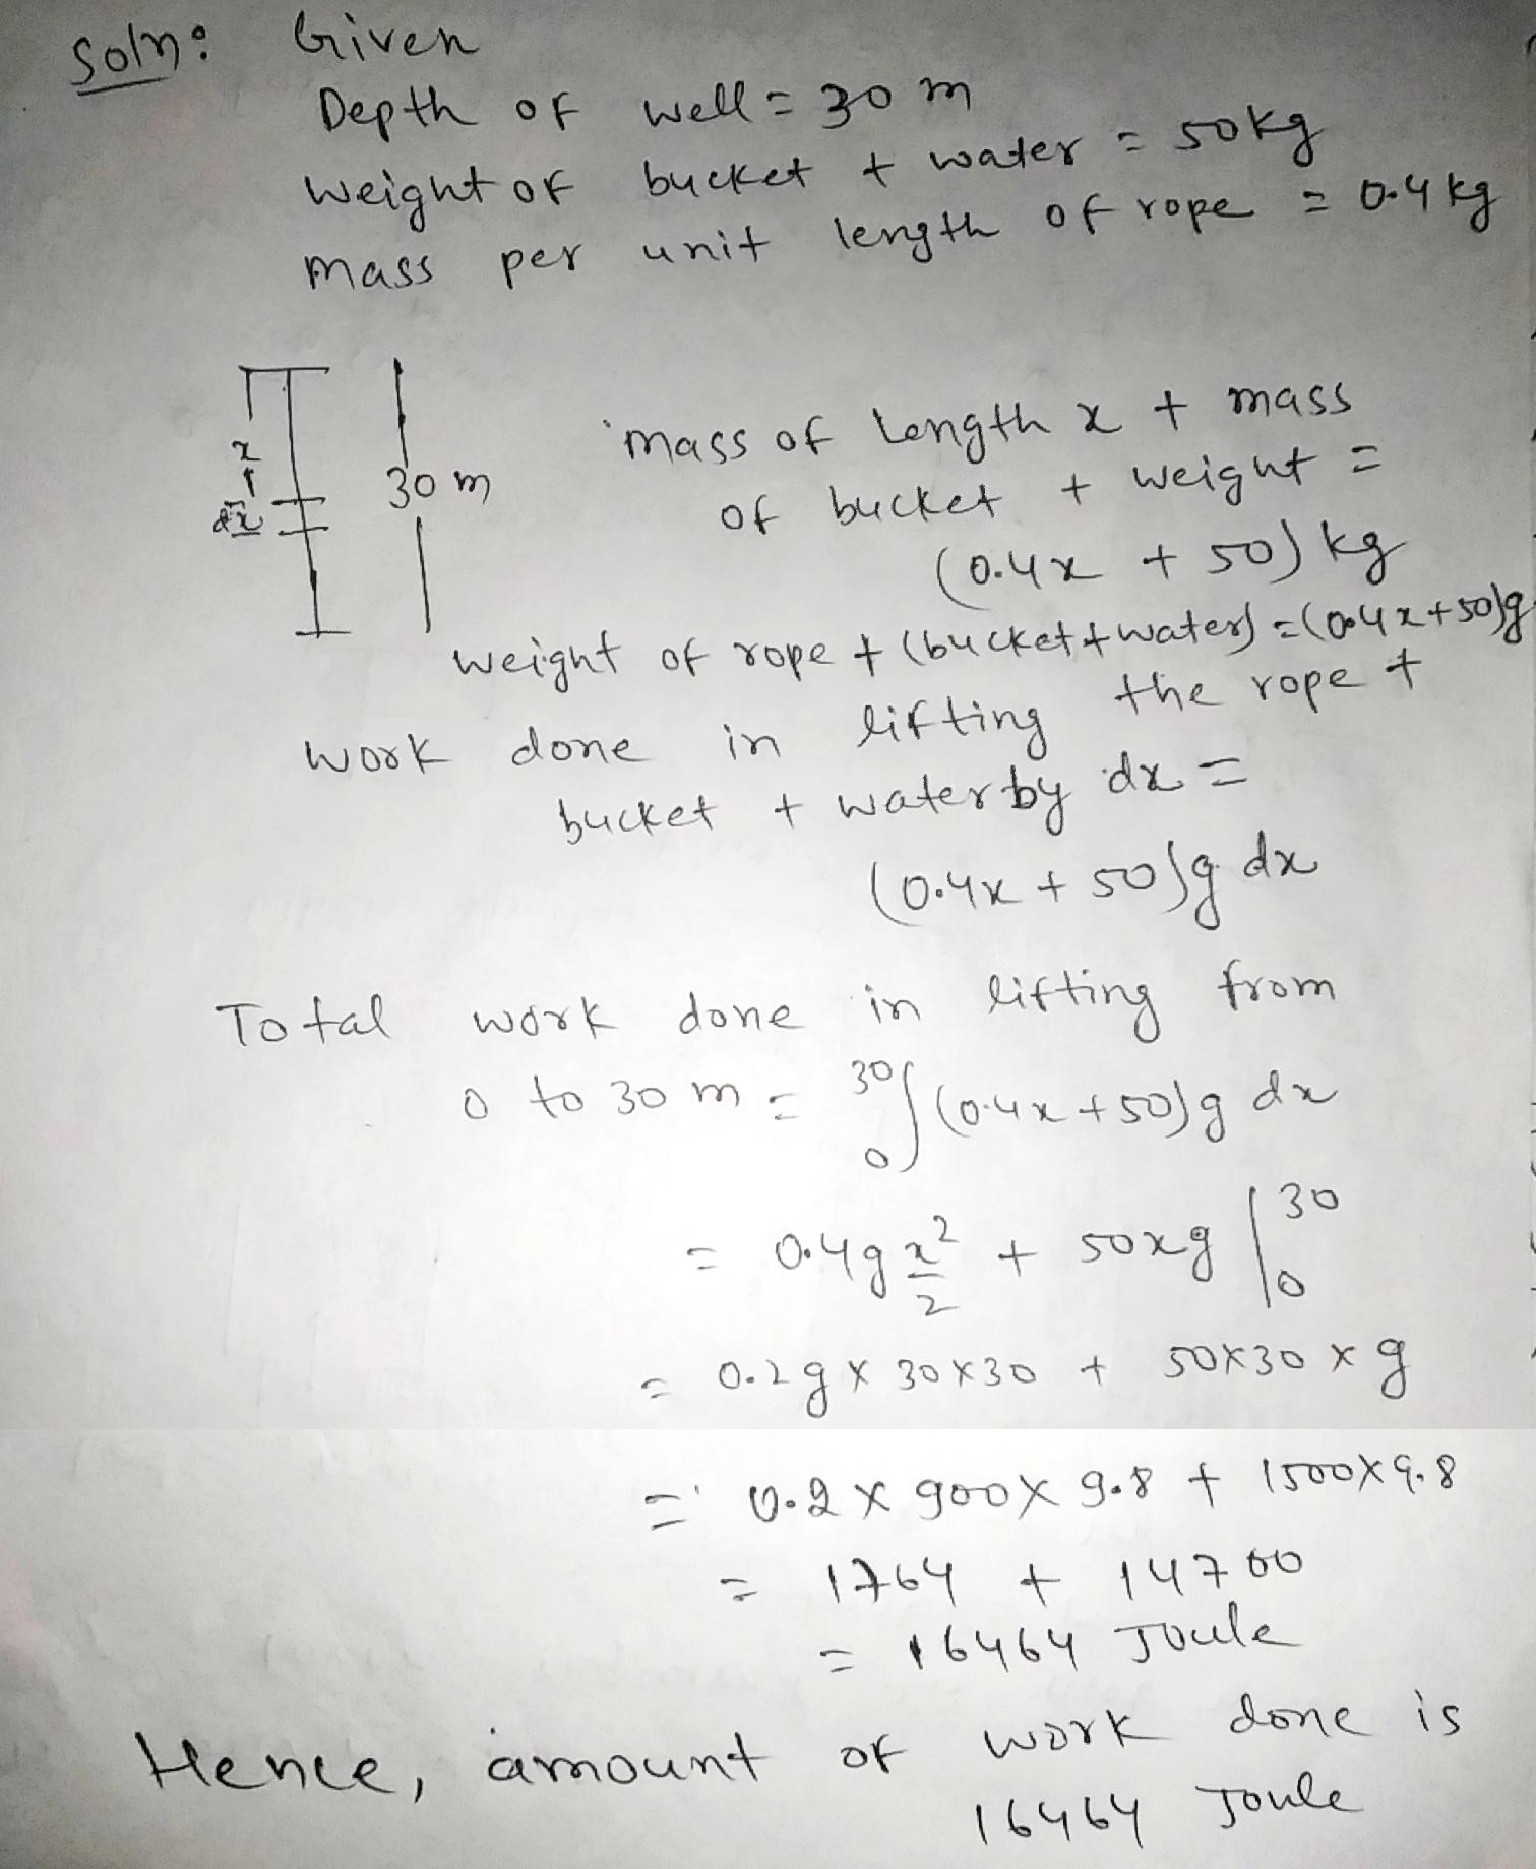 Soln: Given
Depth of well = 30 m
weight of bucket + water = 50kg
mass per unit length of rope = 0.4 kg
x
dx
30 m
mass of length x + mass
of bucket + weight =
(0.4x + 50) kg
weight of rope + (bucket + water) = (0.4x+50)g
work done in lifting the rope +
bucket + water by dx =
(0.4x + 50)g dx
Total work done in lifting from
0 to 30 m = ₀³⁰∫(0.4x+50)g dx
= 0.4g x²/2 + 50xg |₀³⁰
= 0.2g x 30x30 + 50x30 x g
= 0.2 x 900x 9.8 + 1500x9.8
= 1764 + 14700
= 16464 Joule
Hence, amount of work done is
16464 Joule